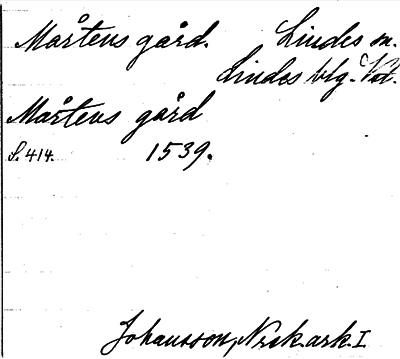 Mårtens gård. Lindes sn.
Lindes blg. Vst.
Mårtens gård
S. 414. 1539.
Johansson, Nrsk. ark. I